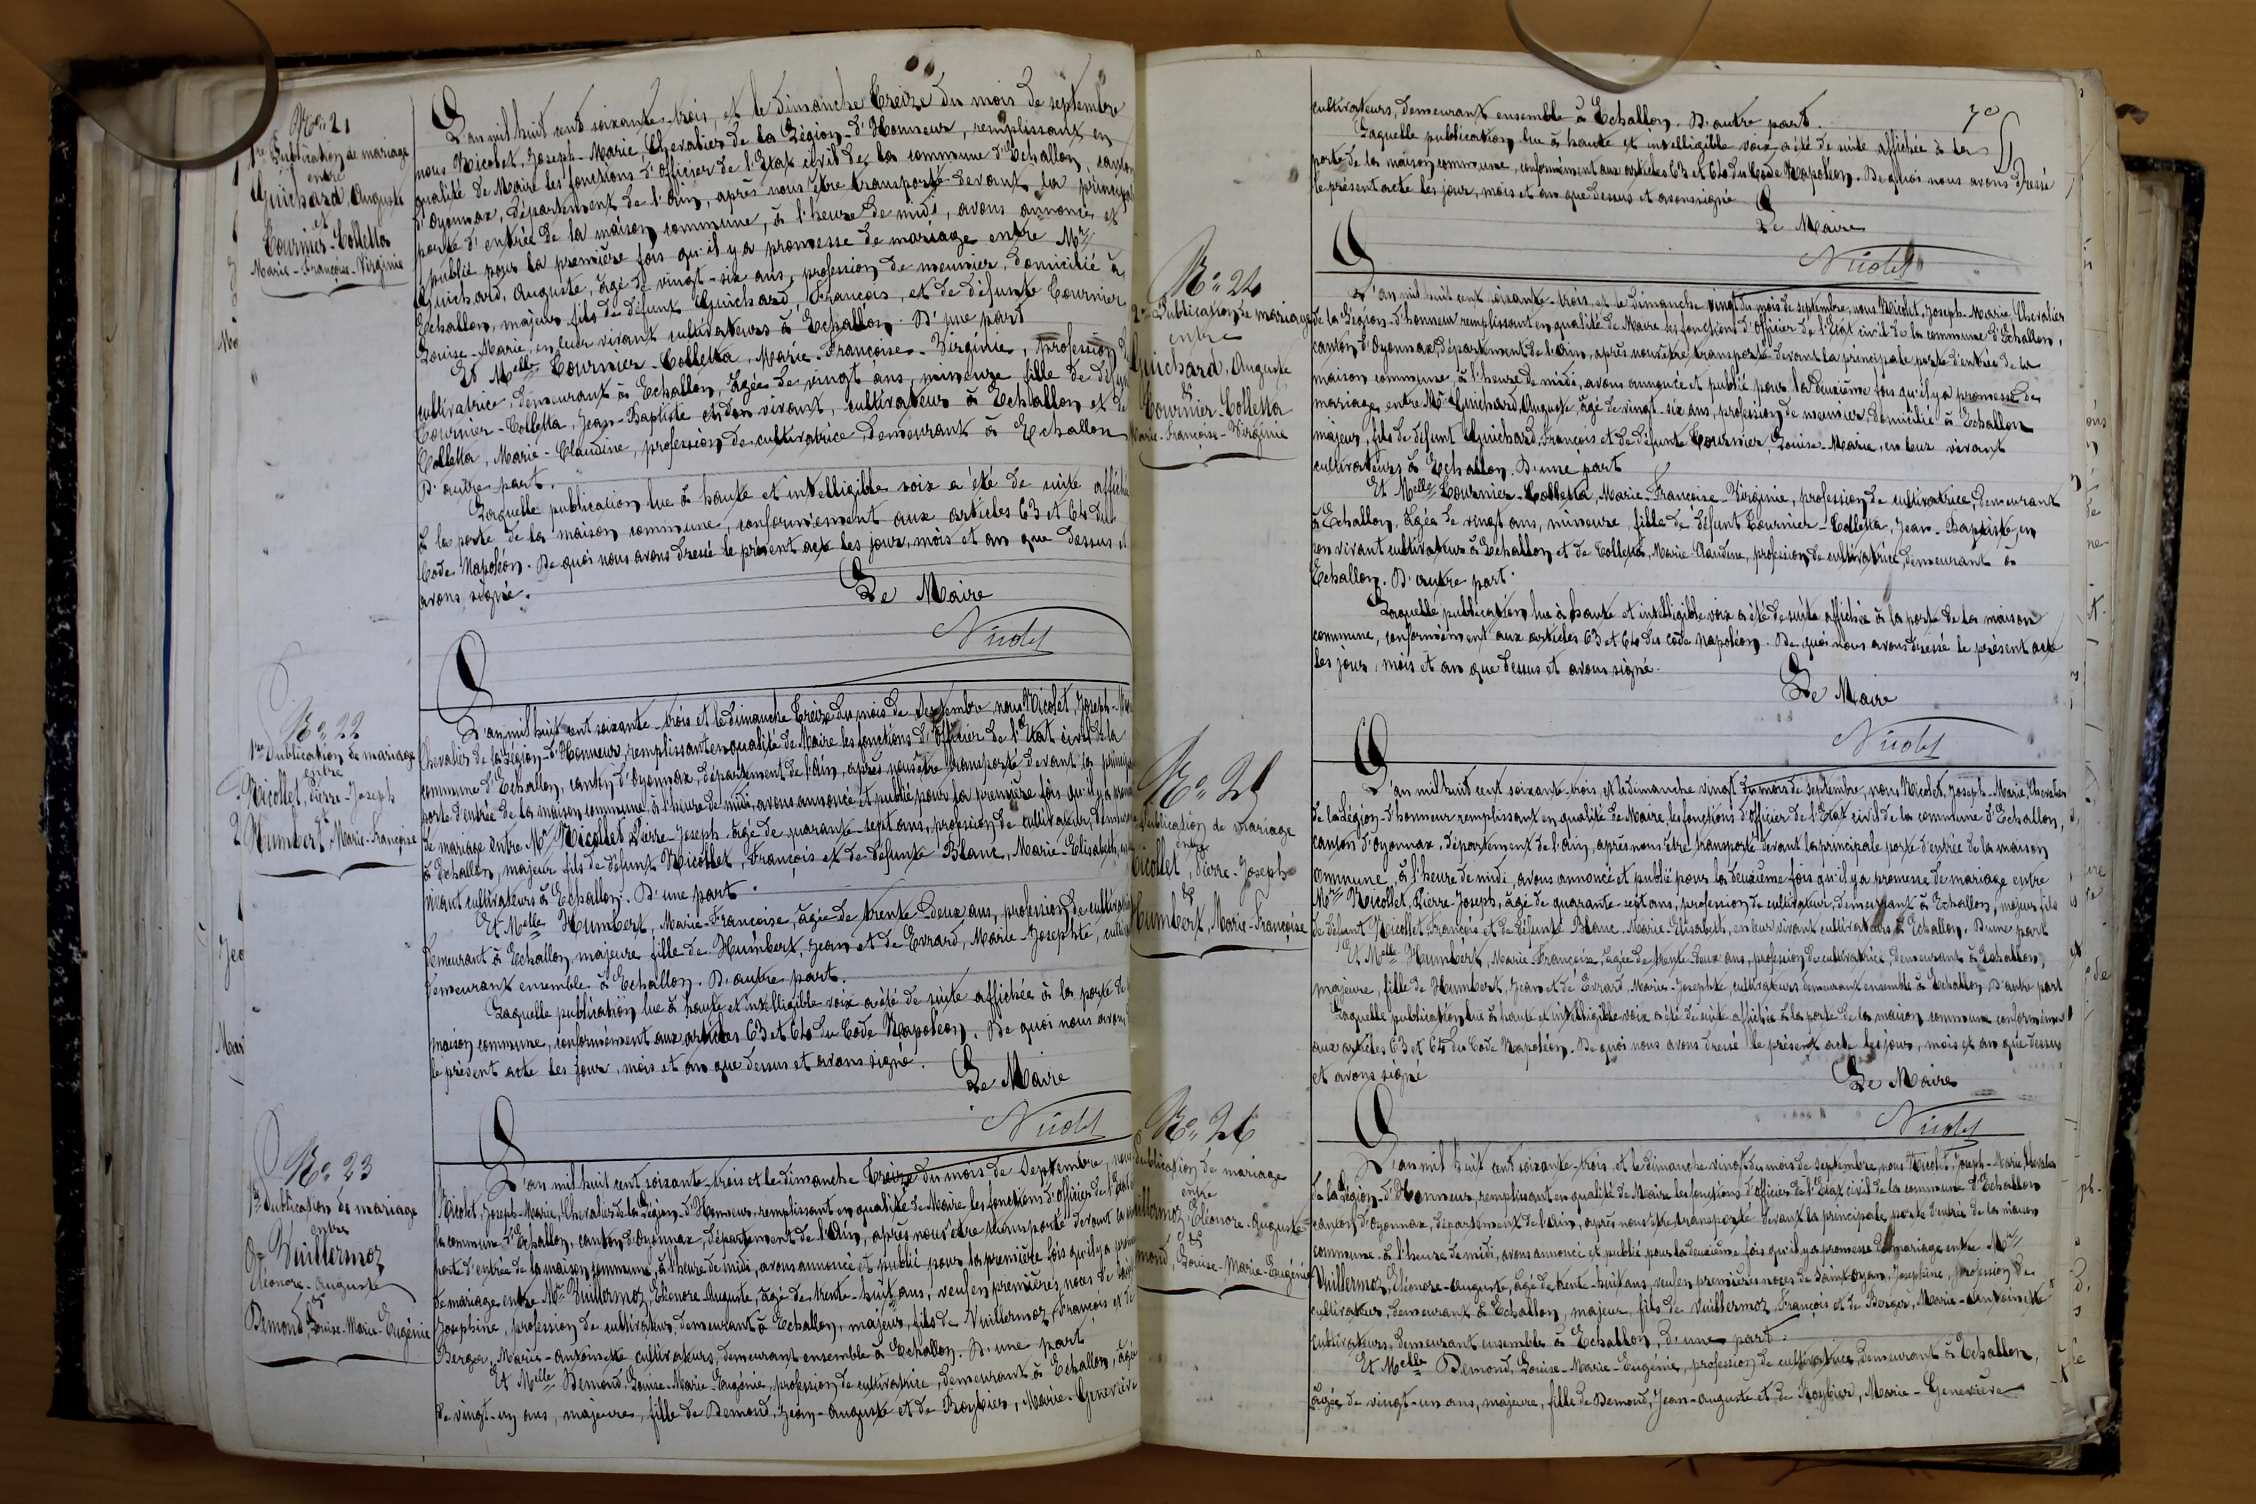 No 21
1re Publication de mariage
entre
Guichard, Auguste
et
Tournier-Colletta
Marie-Françoise-Virginie
L'an mil huit cent soixante-trois, et le dimanche treize du mois de septembre
nous Nicolet, Joseph-Marie, Chevalier de la Légion-d'Honneur, remplissant en
qualité de Maire les fonctions d'Officier de l'Etat civil de la commune d'Echallon, canton
d'Oyonnax, département de l'Ain, après nous être transporté devant la principale
porte d'entrée de la maison commune, à l'heure de midi, avons annoncé et
publié pour la première fois qu'il y a promesse de mariage entre Mr
Guichard, Auguste, âgé de vingt-six ans, profession de meunier, domicilié à
Echallon, majeur fils de défunt Guichard, François, et de défunte Tournier
Louise-Marie, en leur vivant cultivateurs à Echallon. D'une part
Et Melle Tournier-Colletta, Marie-Françoise-Virginie, profession de
cultivatrice, demeurant à Echallon, âgée de vingt ans, mineure fille de défunt
Tournier-Colletta, Jean-Baptiste en son vivant, cultivateur à Echallon et de
Colletta, Marie-Claudine, profession de cultivatrice, demeurant à Echallon
D'autre part.
Laquelle publication lue à haute et intelligible voix a été de suite affichée
à la porte de la maison commune, conformément aux articles 63 et 64 du
Code Napoléon. De quoi nous avons dressé le présent acte les jour, mois et an que dessus et
avons signé.
Le Maire
Nicolet
No 22
1re Publication de mariage
entre
Nicollet, Pierre-Joseph
&
Humbert, Marie-Françoise
L'an mil huit cent soixante-trois et le dimanche treize du mois de septembre nous Nicolet, Joseph-Marie
Chevalier de la Légion-d'Honneur, remplissant en qualité de Maire les fonctions d'Officier de l'Etat civil de la
commune d'Echallon, canton d'Oyonnax, département de l'Ain, après nous être transporté devant la principale
porte d'entrée de la maison commune, à l'heure de midi, avons annoncé et publié pour la première fois qu'il y a promesse
de mariage entre Mr Nicollet Pierre-Joseph âgé de quarante-sept ans, profession de cultivateur, demeurant
à Echallon, majeur fils de défunt Nicollet, François et de défunte Blanc, Marie-Elisabeth, en
vivant cultivateurs à Echallon. D'une part.
Et Melle Humbert, Marie-Françoise, âgée de trente-deux ans, profession de cultivatrice
demeurant à Echallon, majeure fille de Humbert, Jean et de Evrard, Marie-Josephte, cultiv
demeurant ensemble à Echallon. D'autre part.
Laquelle publication lue à haute et intelligible voix a été de suite affichée à la porte de la
maison commune, conformément aux articles 63 et 64 du Code Napoléon. De quoi nous avons
le présent acte les jour, mois et an que dessus et avons signé.
Le Maire
Nicolet
No 23
1re Publication de mariage
entre
Vuillermoz
Eléonore-Auguste
&
Demond, Louise-Marie-Eugénie
L'an mil huit cent soixante-trois et le dimanche treize du mois de Septembre, nous
Nicolet, Joseph-Marie, Chevalier de la Légion-d'Honneur, remplissant en qualité de Maire les fonctions d'Officier de l'Etat
la commune d'Echallon, canton d'Oyonnax, département de l'Ain, après nous être transporté devant la
porte d'entrée de la maison commune, à l'heure de midi, avons annoncé et publié pour la première fois qu'il y a promesse
de mariage entre Mr Vuillermoz, Eléonore-Auguste, âgé de trente-huit ans, veuf en premières noces de
Josephine, profession de cultivateur, demeurant à Echallon, majeur, fils de Vuillermoz, François et de
Berger, Marie-Antoinette cultivateurs, demeurant ensemble à Echallon. D'une part
Et Melle Demond, Louise-Marie-Eugénie, profession de cultivatrice, demeurant à Echallon, âgée
de vingt-un ans, majeure, fille de Demond, Jean-Auguste et de Roybier, Marie-Geneviève
70
cultivateurs, demeurant ensemble à Echallon. D'autre part.
Laquelle publication lue à haute et intelligible voix a été de suite affichée à la
porte de la maison commune, conformément aux articles 63 et 64 du Code Napoléon. De quoi nous avons dressé
le présent acte les jour, mois et an que dessus et avons signé
Le Maire
Nicolet
No 24
2e Publication de mariage
entre
Guichard, Auguste
&
Tournier-Colletta
Marie-Françoise-Virginie
L'an mil huit cent soixante-trois, et le dimanche vingt du mois de septembre, nous Nicolet, Joseph-Marie, Chevalier
de la Légion-d'honneur remplissant en qualité de Maire les fonctions d'Officier de l'Etat civil de la commune d'Echallon,
canton d'Oyonnax, département de l'Ain, après nous être transporté devant la principale porte d'entrée de la
maison commune, à l'heure de midi, avons annoncé et publié pour la deuxième fois qu'il y a promesse de
mariage entre Mr Guichard, Auguste, âgé de vingt-six ans, profession de meunier, domicilié à Echallon
majeur, fils de défunt Guichard, François et de défunte Tournier, Louise-Marie, en leur vivant
cultivateurs à Echallon. D'une part
Et Melle Tournier-Colletta, Marie-Françoise-Virginie, profession de cultivatrice, demeurant
à Echallon, âgée de vingt ans, mineure, fille de défunt Tournier-Colletta, Jean-Baptiste, en
son vivant cultivateur à Echallon et de Colletta, Marie Claudine, profession de cultivatrice, demeurant à
Echallon. D'autre part.
Laquelle publication lue à haute et intelligible voix a été de suite affichée à la porte de la maison
commune, conformément aux articles 63 et 64 du Code Napoléon. De quoi nous avons dressé le présent acte
les jour, mois et an que dessus et avons signé.
Le Maire
Nicolet
No 25
Publication de mariage
entre
Nicollet, Pierre-Joseph
&
Humbert, Marie-Françoise
L'an mil huit cent soixante-trois, et le dimanche vingt du mois de septembre, nous Nicolet, Joseph-Marie, Chevalier
de la Légion-d'honneur remplissant en qualité de Maire, les fonctions d'officier de l'Etat civil de la commune d'Echallon,
canton d'Oyonnax, département de l'Ain, après nous être transporté devant la principale porte d'entrée de la maison
commune, à l'heure de midi, avons annoncé et publié pour la deuxième fois qu'il y a promesse de mariage entre
Mr Nicollet, Pierre-Joseph, âgé de quarante-sept ans, profession de cultivateur, demeurant à Echallon, majeur fils
de défunt Nicollet, François et de défunte Blanc, Marie-Elisabeth, en leur vivant cultivateurs à Echallon. D'une part
Et Melle Humbert, Marie-Françoise, âgée de trente-deux ans, profession de cultivatrice demeurant à Echallon,
majeure, fille de Humbert, Jean et de Evrard Marie-Josephte, cultivateurs demeurant ensemble à Echallon D'autre part
Laquelle publication lue à haute et intelligible voix a été de suite affichée à la porte de la maison commune conformément
aux articles 63 et 64 du Code Napoléon. De quoi nous avons dressé le présent acte les jour, mois et an que dessus
et avons signé
Le Maire
Nicolet
No 26
Publication de mariage
entre
Vuillermoz, Eléonore-Auguste
&
Demond, Louise-Marie-Eugénie
L'an mil huit cent soixante-trois, et le dimanche vingt du mois de septembre, nous Nicolet, Joseph-Marie, Chevalier
de la Légion-d'Honneur, remplissant en qualité de Maire les fonctions d'Officier de l'Etat civil de la commune d'Echallon
canton d'Oyonnax, département de l'Ain, après nous être transporté devant la principale porte d'entrée de la maison
commune à l'heure de midi, avons annoncé et publié pour la deuxième fois qu'il y a promesse de mariage entre Mr
Vuillermoz, Eléonore-Auguste, âgé de trente-huit ans, veuf en premières noces de Saint-Oyan, Josephine, profession de
cultivateur, demeurant à Echallon, majeur, fils de Vuillermoz, François et de Berger, Marie-Antoinette
cultivateurs, demeurant ensemble à Echallon, d'une part.
Et Melle Demond, Louise-Marie-Eugénie, profession de cultivatrice, demeurant à Echallon,
âgée de vingt-un ans, majeure, fille de Demond, Jean-Auguste et de Roybier, Marie-Geneviève